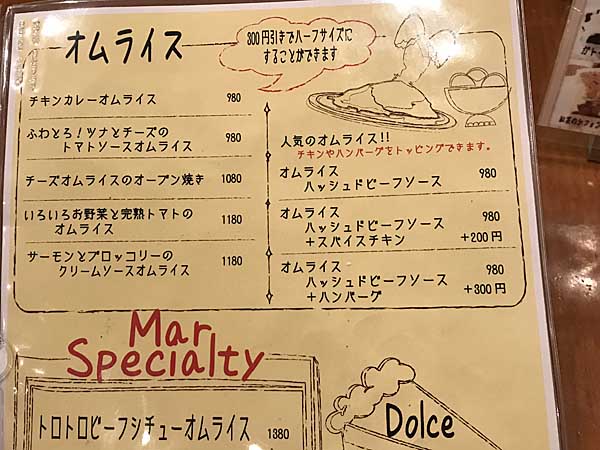 オムライス
300円引きでハーフサイズに
することができます
チキンカレーオムライス 980
ふわとろ!ツナとチーズの
トマトソースオムライス 980
チーズオムライスのオーブン焼き 1080
いろいろお野菜と完熟トマトの
オムライス 1180
サーモンとブロッコリーの
クリームソースオムライス 1180
人気のオムライス!!
チキンやハンバーグをトッピングできます。
オムライス
ハッシュドビーフソース 980
オムライス
ハッシュドビーフソース 980
+スパイスチキン +200円
オムライス
ハッシュドビーフソース 980
+ハンバーグ +300円
Mar
Specialty
トロトロビーフシチューオムライス 1380
Dolce